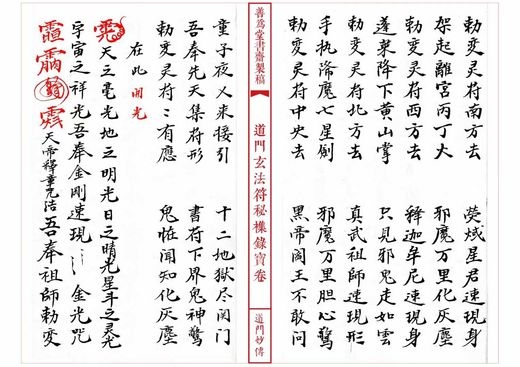 勅变灵符南方去　荧惑星君速現身
架起離宮丙丁火　邪魔万里化灰塵
勅变灵符西方去　释迦牟尼速現身
蓬萊降下黄山掌　只見邪鬼走如雲
勅变灵符北方去　真武祖师速現形
手执降魔七星劍　邪魔万里胆心驚
勅变灵符中央去　黑帝阎王不敢问
善為堂書齋製稿
道門玄法符秘襍錄寶卷
道门妙傳
童子夜人来接引　十二地狱尽闭门
吾奉先天集符形　書符下界鬼神驚
勅变灵符〻有應　鬼怪闻知化灰塵
在此開光
天之毫光地之明光日之晴光星斗之灵光
宇宙之祥光吾奉金刚速現　金光咒
天帝釋章 吾奉祖師勅变